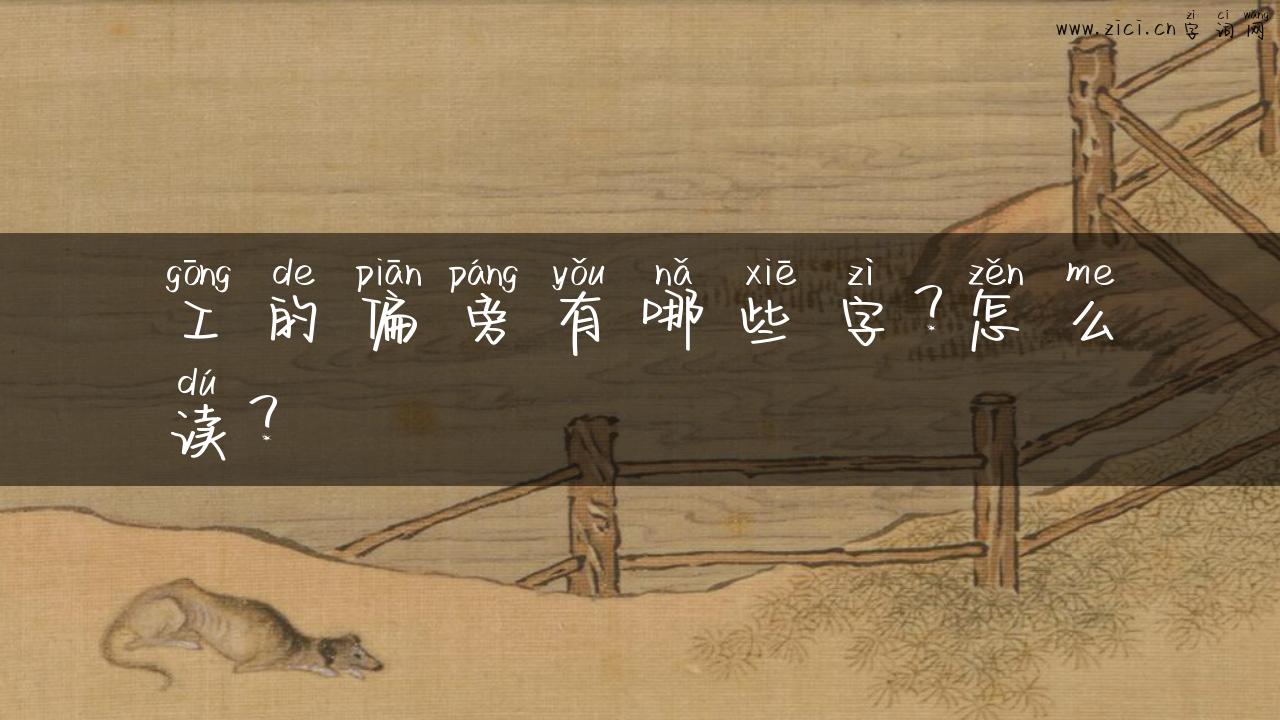 zì cí wǎng
www.zici.cn字词网
gōng de piān páng yǒu nǎ xiē zì zěn me
工的偏旁有哪些字？怎么
dú
读？